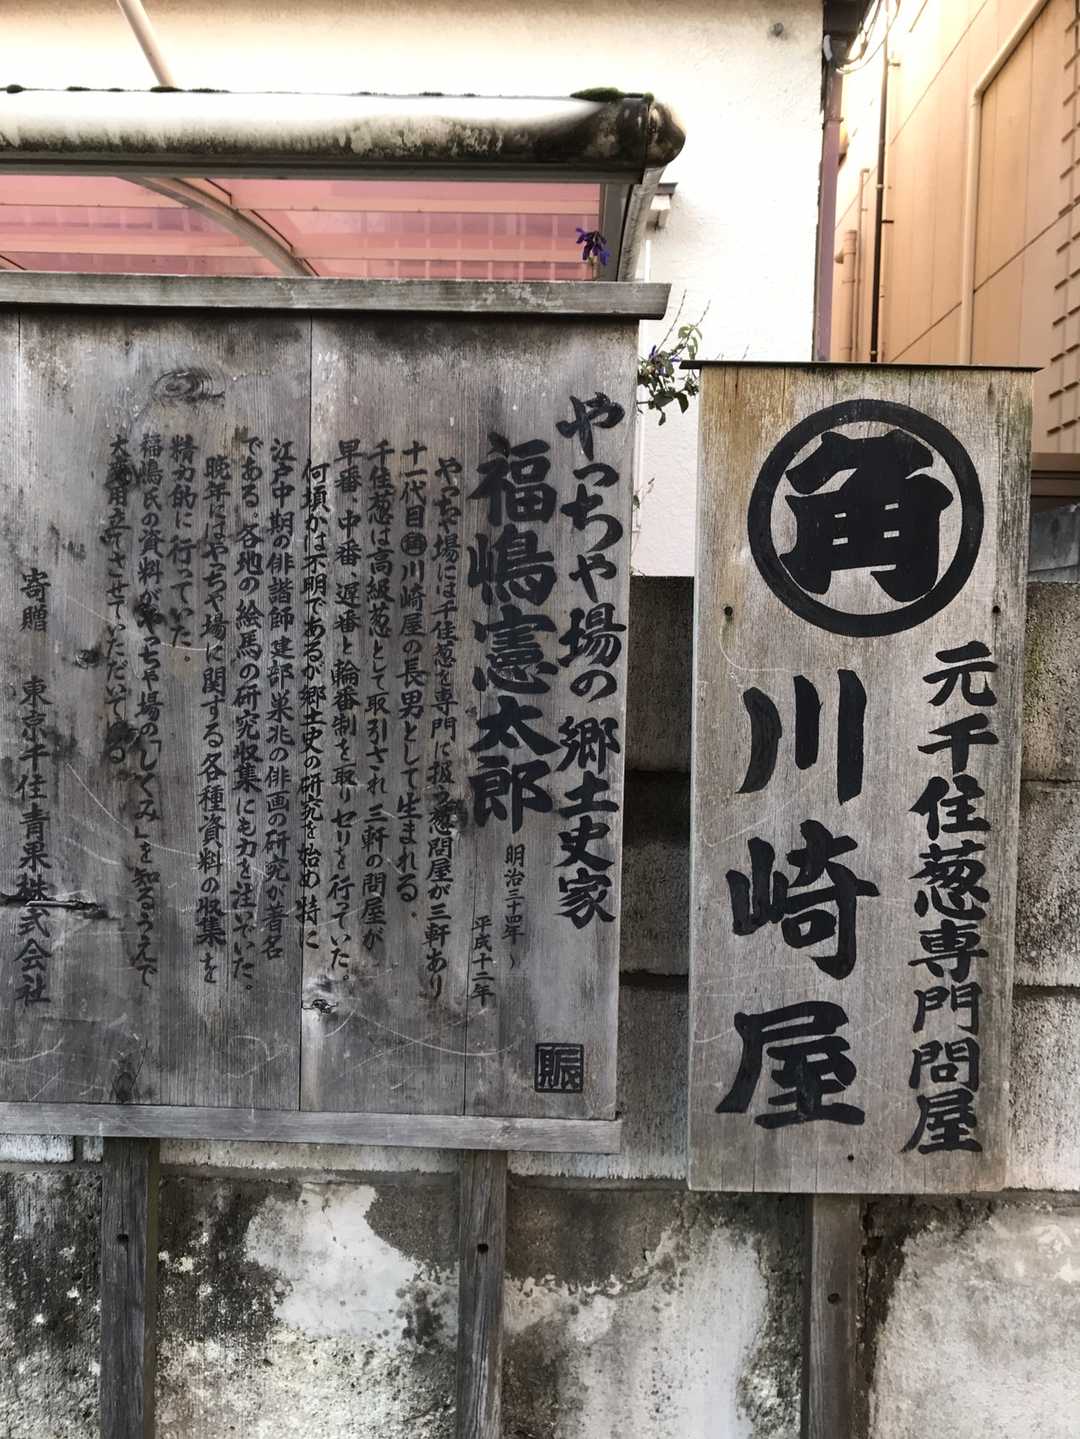 元千住葱専門問屋
角
川崎屋
やっちゃ場の郷土史家
福嶋憲太郎
明治三十四年~
平成十二年
やっちゃ場には千住葱を専門に扱う葱問屋が三軒あり
十一代目角川崎屋の長男として生まれる。
千住葱は高級葱として取引され三軒の問屋が
早番、中番、遅番と輪番制を取りセリを行っていた。
何頃かは不明であるが郷土史の研究を始め特に
江戸中期の俳諧師建部巣兆の俳画の研究が著名
である。各地の絵馬の研究収集にも力を注いでいた。
晩年にはやっちゃ場に関する各種資料の収集を
精力的に行っていた。
福嶋氏の資料がやっちゃ場の「しくみ」を知るうえで
大変用立てさせていただいている
寄贈 東京千住青果株式会社
賑